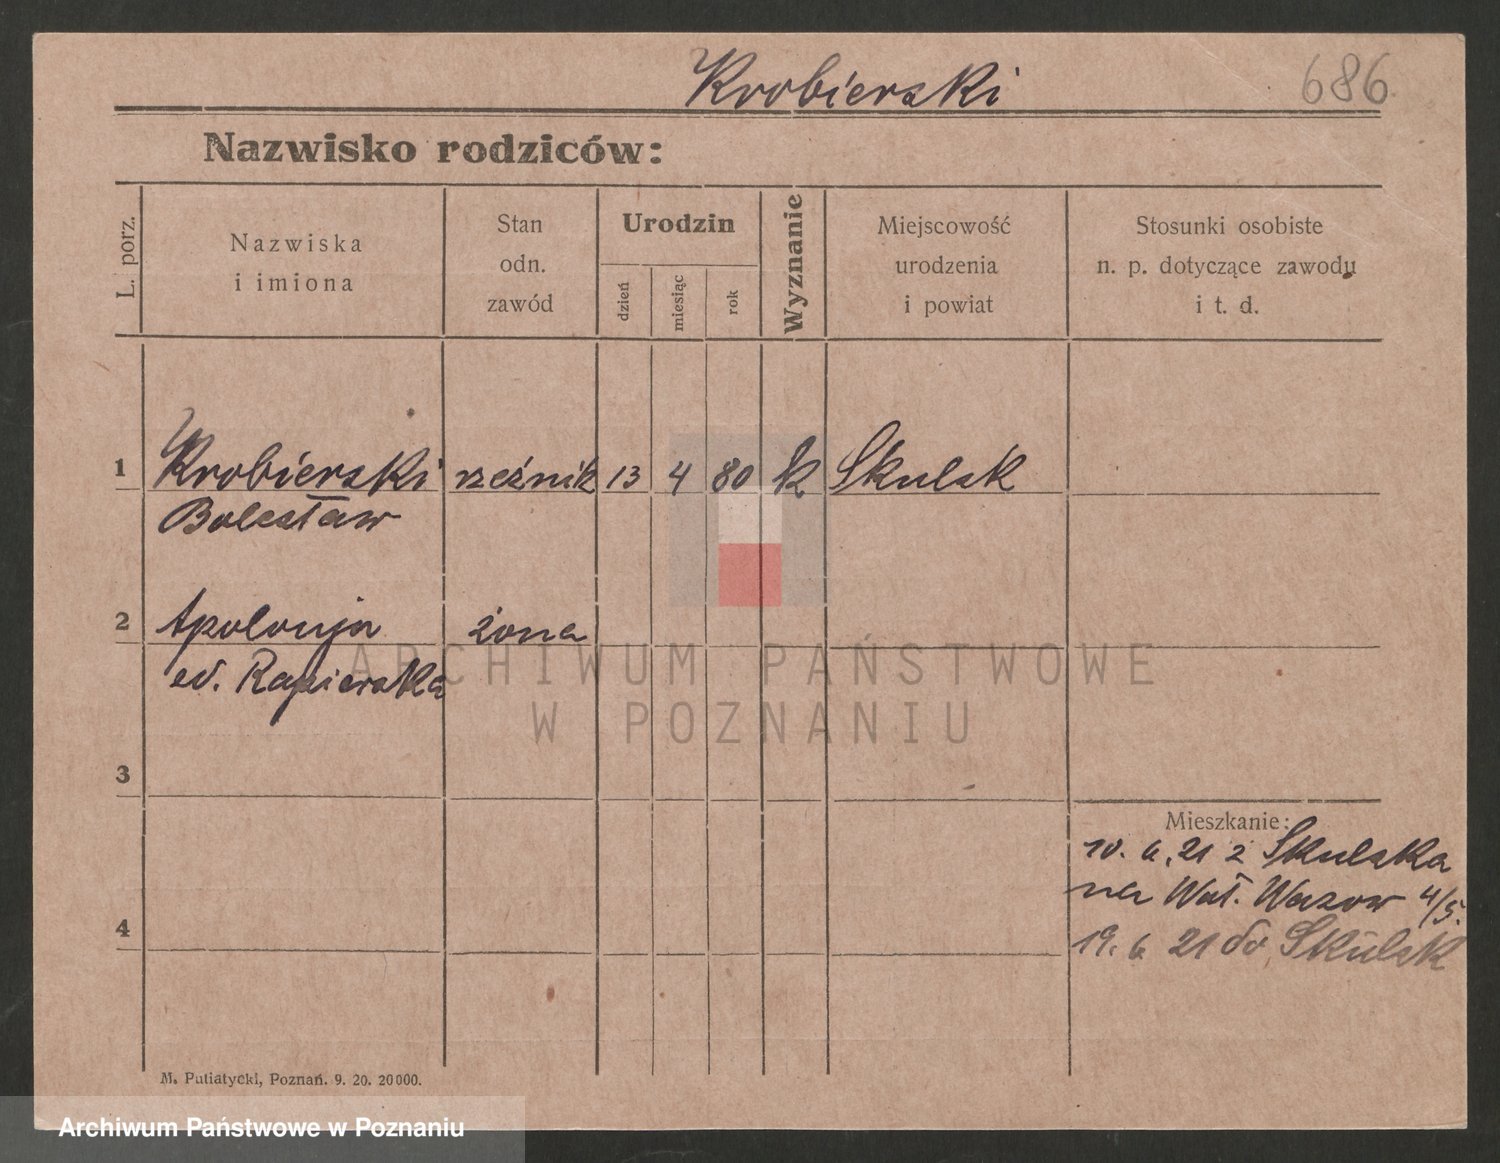 Krobierski
686.
Nazwisko rodziców:
L. porz.
Nazwiska
i imiona
Stan
odn.
zawód
Urodzin
dzień
miesiąc
rok
Wyznanie
Miejscowość
urodzenia
i powiat
Stosunki osobiste
n. p. dotyczące zawodu
i t. d.
1 Krobierski rzeźnik 13 4 80 k Skulsk
Bolesław
2 Apolonja żona
Rapierska
ARCHIWUM PAŃSTWOWE
W POZNANIU
3
Mieszkanie:
10. 6. 21 z Skulska
na Wał. Wazow 4/5.
4
19. 6 21 do Skulsk
M. Putiatycki, Poznań. 9. 20. 20000.
Archiwum Państwowe w Poznaniu